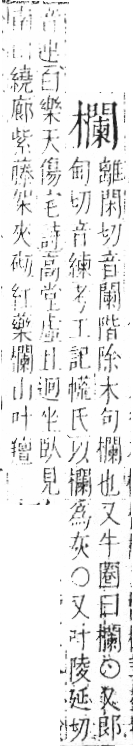 欄離閑切音闌階除木句欄也又牛圈曰欄○又郎
甸切音練考工記㡛氏以欄為灰○又叶陵延切
音也白樂天傷宅詩高堂虛且迥坐臥見
南山繞廊紫藤架夾砌紅藥欄山叶